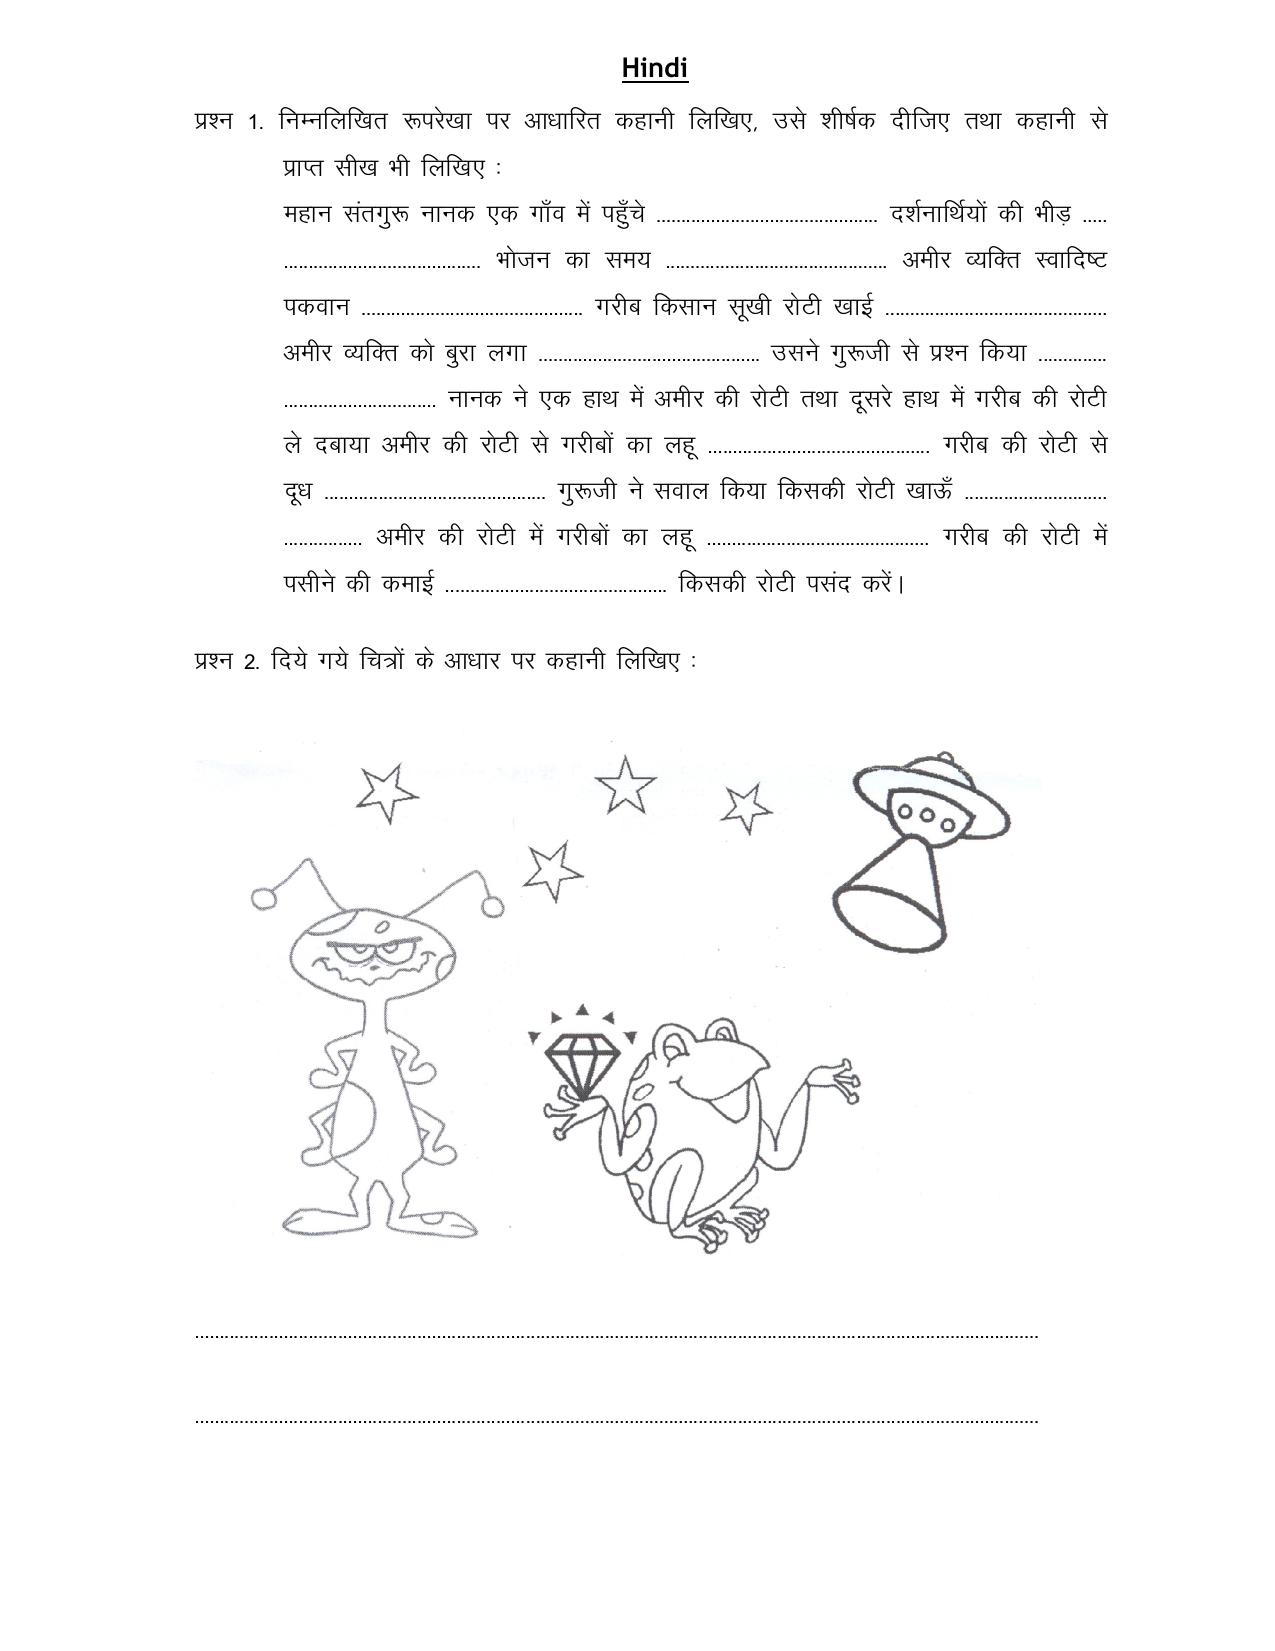 Hindi
प्रश्न 1. निम्नलिखित रूपरेखा पर आधारित कहानी लिखिए, उसे शीर्षक दीजिए तथा कहानी से
प्राप्त सीख भी लिखिए :
महान संतगुरू नानक एक गाँव में पहुँचे ............................................. दर्शनार्थियों की भीड़ .....
........................................ भोजन का समय ............................................. अमीर व्यक्ति स्वादिष्ट
पकवान ............................................. गरीब किसान सूखी रोटी खाई .............................................
अमीर व्यक्ति को बुरा लगा ............................................. उसने गुरूजी से प्रश्न किया ..............
............................... नानक ने एक हाथ में अमीर की रोटी तथा दूसरे हाथ में गरीब की रोटी
ले दबाया अमीर की रोटी से गरीबों का लहू ............................................. गरीब की रोटी से
दूध ............................................. गुरूजी ने सवाल किया किसकी रोटी खाऊँ .............................
................ अमीर की रोटी में गरीबों का लहू ............................................. गरीब की रोटी में
पसीने की कमाई ............................................. किसकी रोटी पसंद करें।
प्रश्न 2. दिये गये चित्रों के आधार पर कहानी लिखिए :